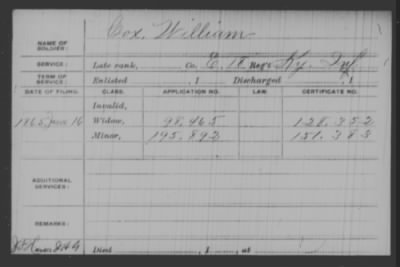 Cox, William
NAME OF SOLDIER:
SERVICE: Late rank, Co. E, 18 Reg't Ky. Inf.
TERM OF SERVICE: Enlisted , 1 Discharged , 1
DATE OF FILING. CLASS. APPLICATION NO. LAW. CERTIFICATE NO.
Invalid,
1865 June 16 Widow, 98.465 128.352
Minor, 195.892 151.383
ADDITIONAL SERVICES:
REMARKS:
Died , 1 , at